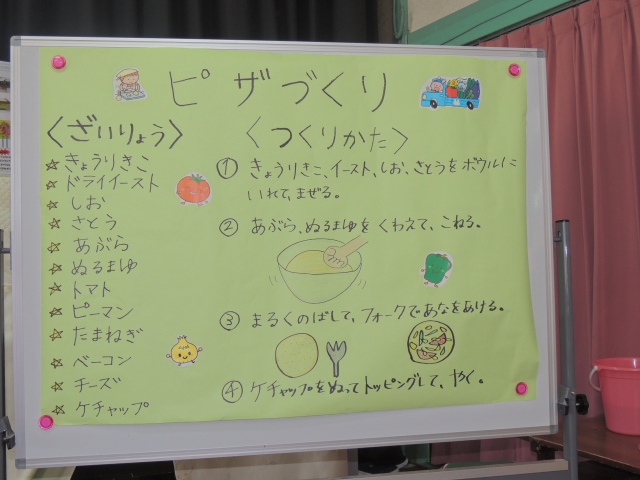 ピザづくり
〈ざいりょう〉
☆ きょうりきこ
☆ ドライイースト
☆ しお
☆ さとう
☆ あぶら
☆ ぬるまゆ
☆ トマト
☆ ピーマン
☆ たまねぎ
☆ ベーコン
☆ チーズ
☆ ケチャップ
〈つくりかた〉
① きょうりきこ、イースト、しお、さとうをボウルに
いれて、まぜる。
② あぶら、ぬるまゆをくわえて、こねる。
③ まるくのばして、フォークであなをあける。
④ ケチャップをぬってトッピングして、やく。